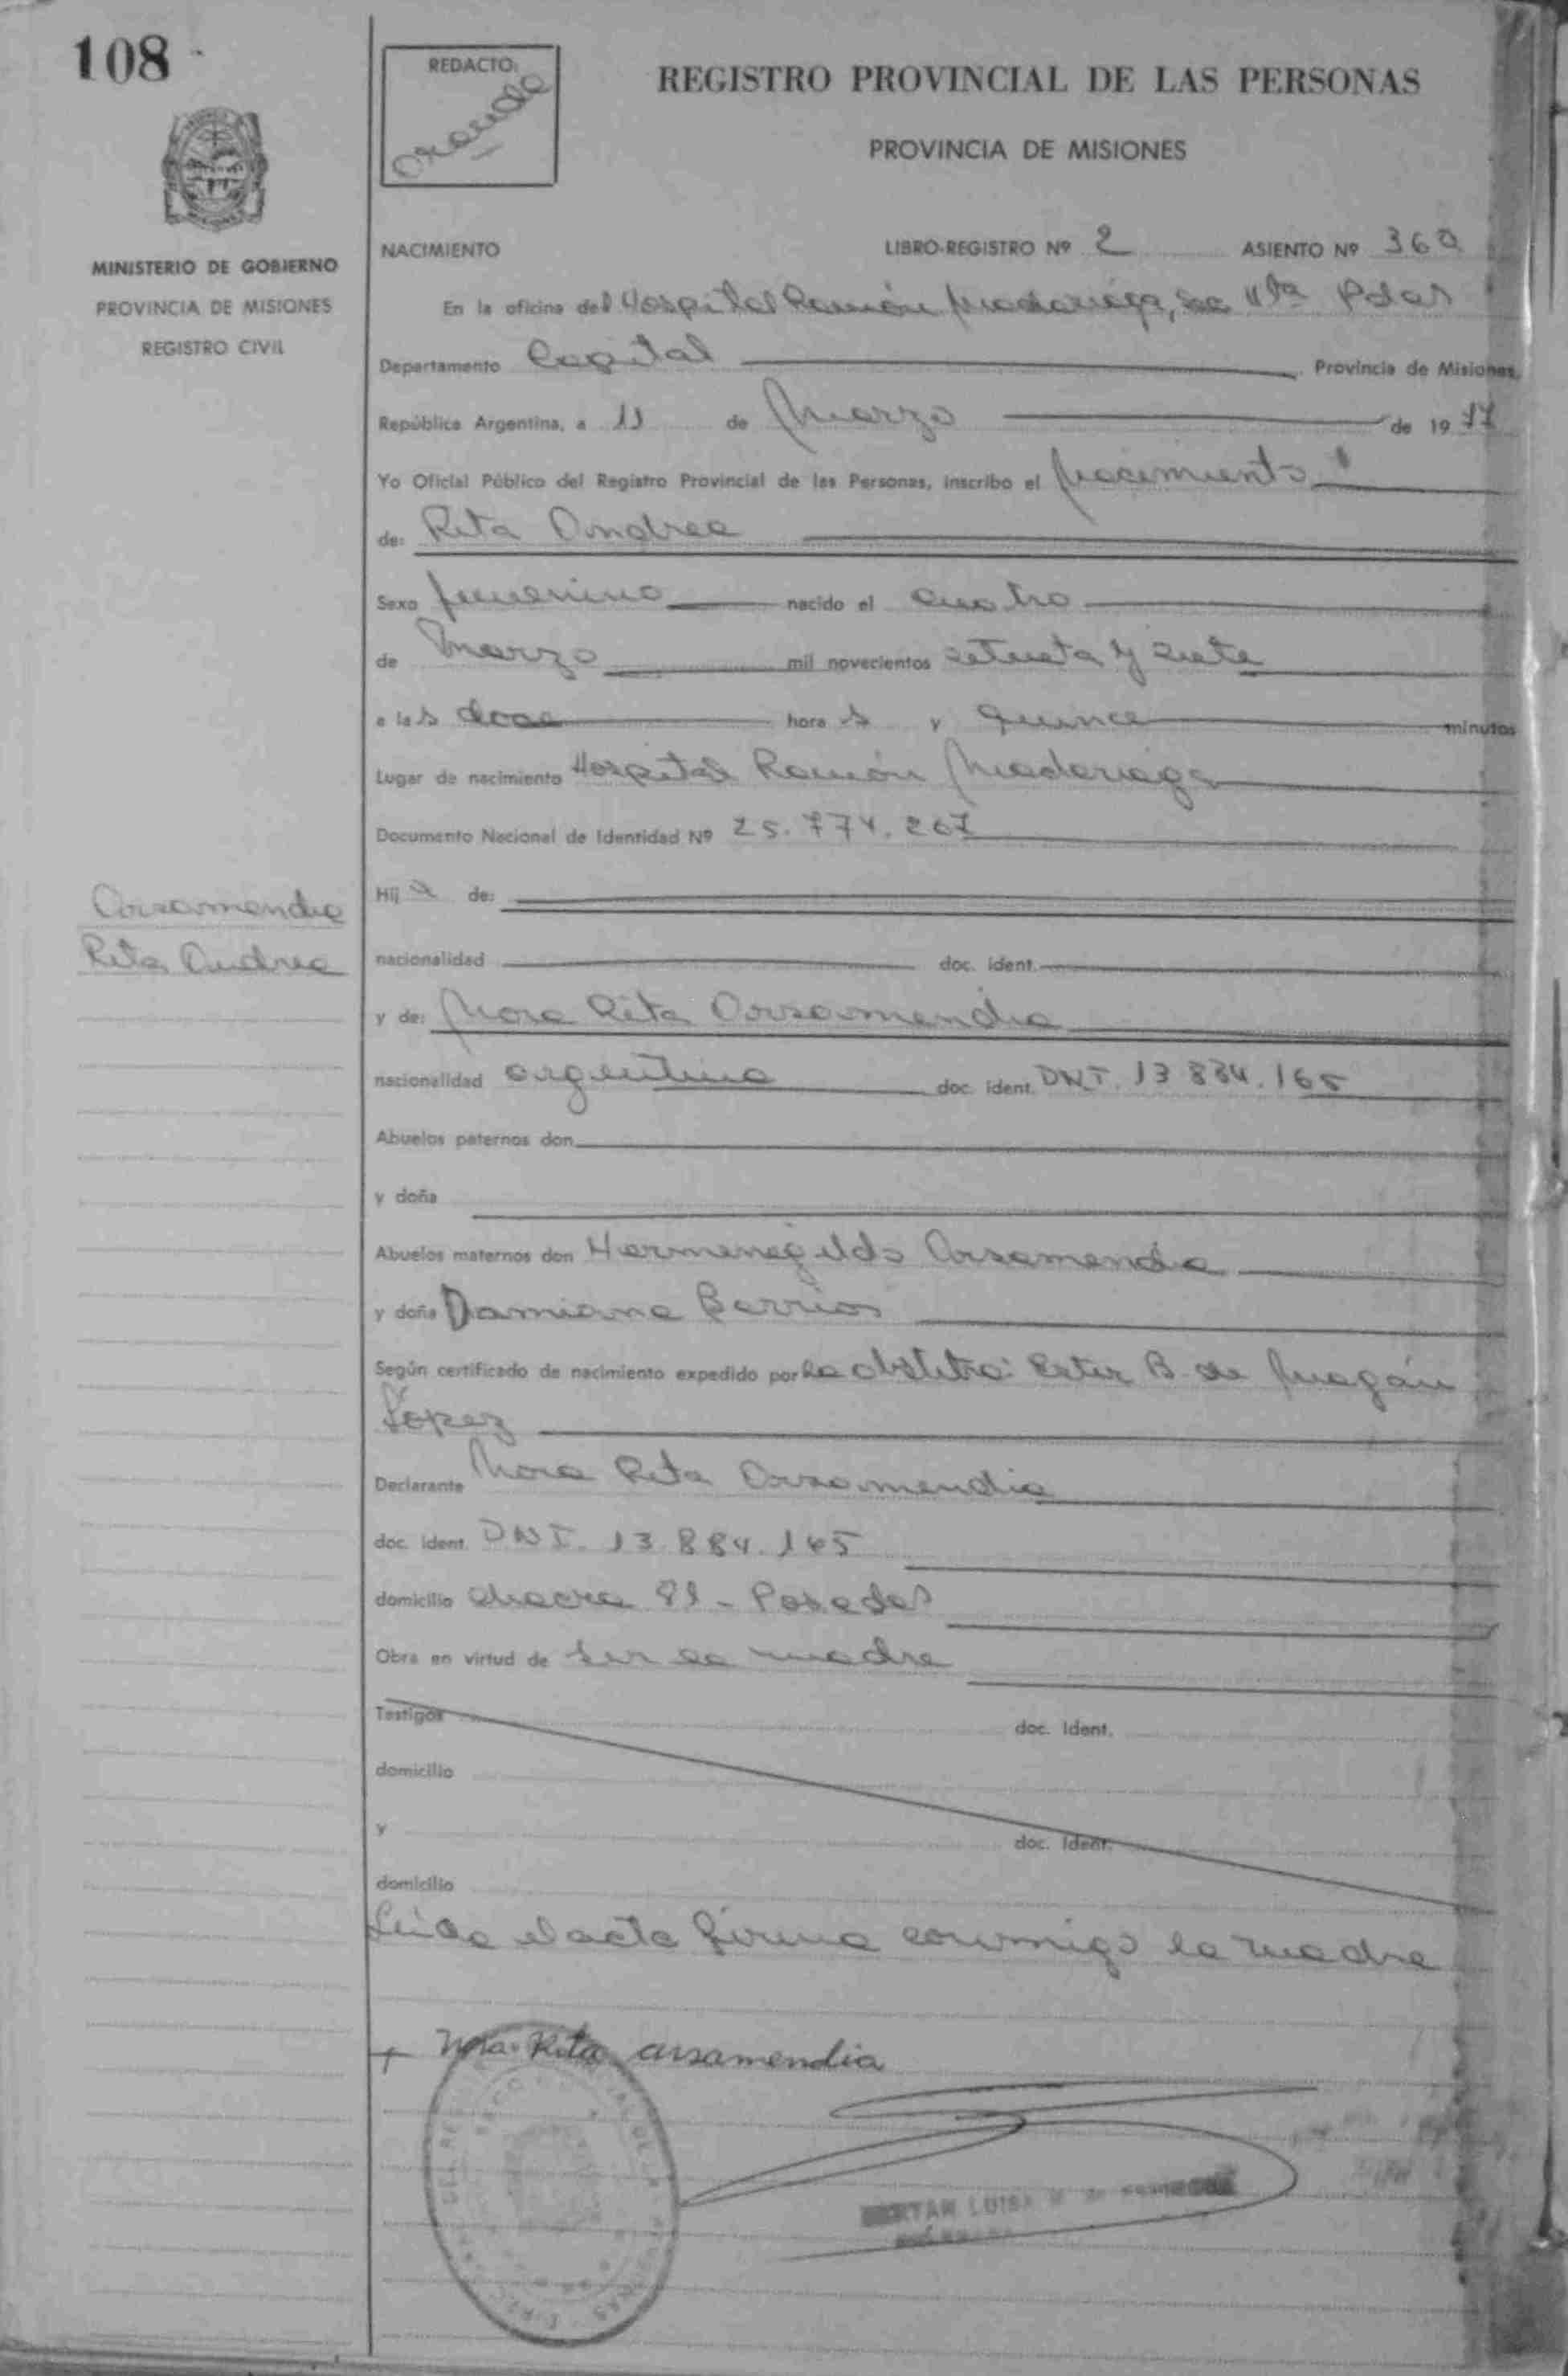 108
REDACTO:
REGISTRO PROVINCIAL DE LAS PERSONAS
PROVINCIA DE MISIONES
MINISTERIO DE GOBIERNO
PROVINCIA DE MISIONES
REGISTRO CIVIL
NACIMIENTO LIBRO-REGISTRO Nº 2 ASIENTO Nº 360
En la oficina del Hospital Ramón Madariaga, Pdas
Departamento Capital Provincia de Misiones,
República Argentina, a 11 de Marzo de 1977
Yo Oficial Público del Registro Provincial de las Personas, inscribo el Nacimiento
de: Rita Andrea
Sexo femenino nacido el cuatro
de Marzo mil novecientos setenta y siete
a las doce horas y quince minutos
Lugar de nacimiento Hospital Ramón Madariaga
Documento Nacional de Identidad Nº 25.774.267
Hija de:
Arsamendia
Rita Andrea
nacionalidad doc. ident.
y de: Nora Rita Arsamendia
nacionalidad argentina doc. ident. DNI. 13 884.165
Abuelos paternos don
y doña
Abuelos maternos don Hermenegildo Arsamendia
y doña Damiana Berrios
Según certificado de nacimiento expedido por la obstetra: Ester B. de Magán
López
Declarante Nora Rita Arsamendia
doc. ident. DNI. 13.884.165
domicilio chacra 81 - Posadas
Obra en virtud de ser la madre
Testigos doc. Ident.
domicilio
y doc. Ident.
domicilio
Leída el acta firma conmigo la madre
Rita arsamendia
LUISA